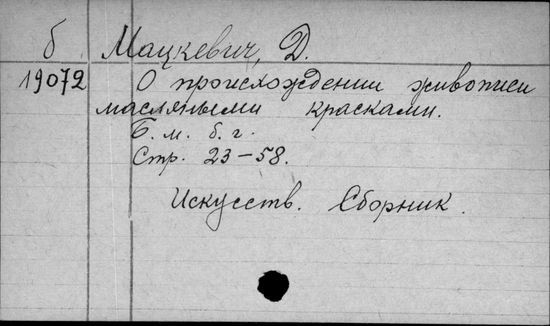 б Мацкевич, Д.
19072 О происхождении живописи
масляными красками.
Б. м. б. г.
Стр. 23-58.
Искусств. Сборник.